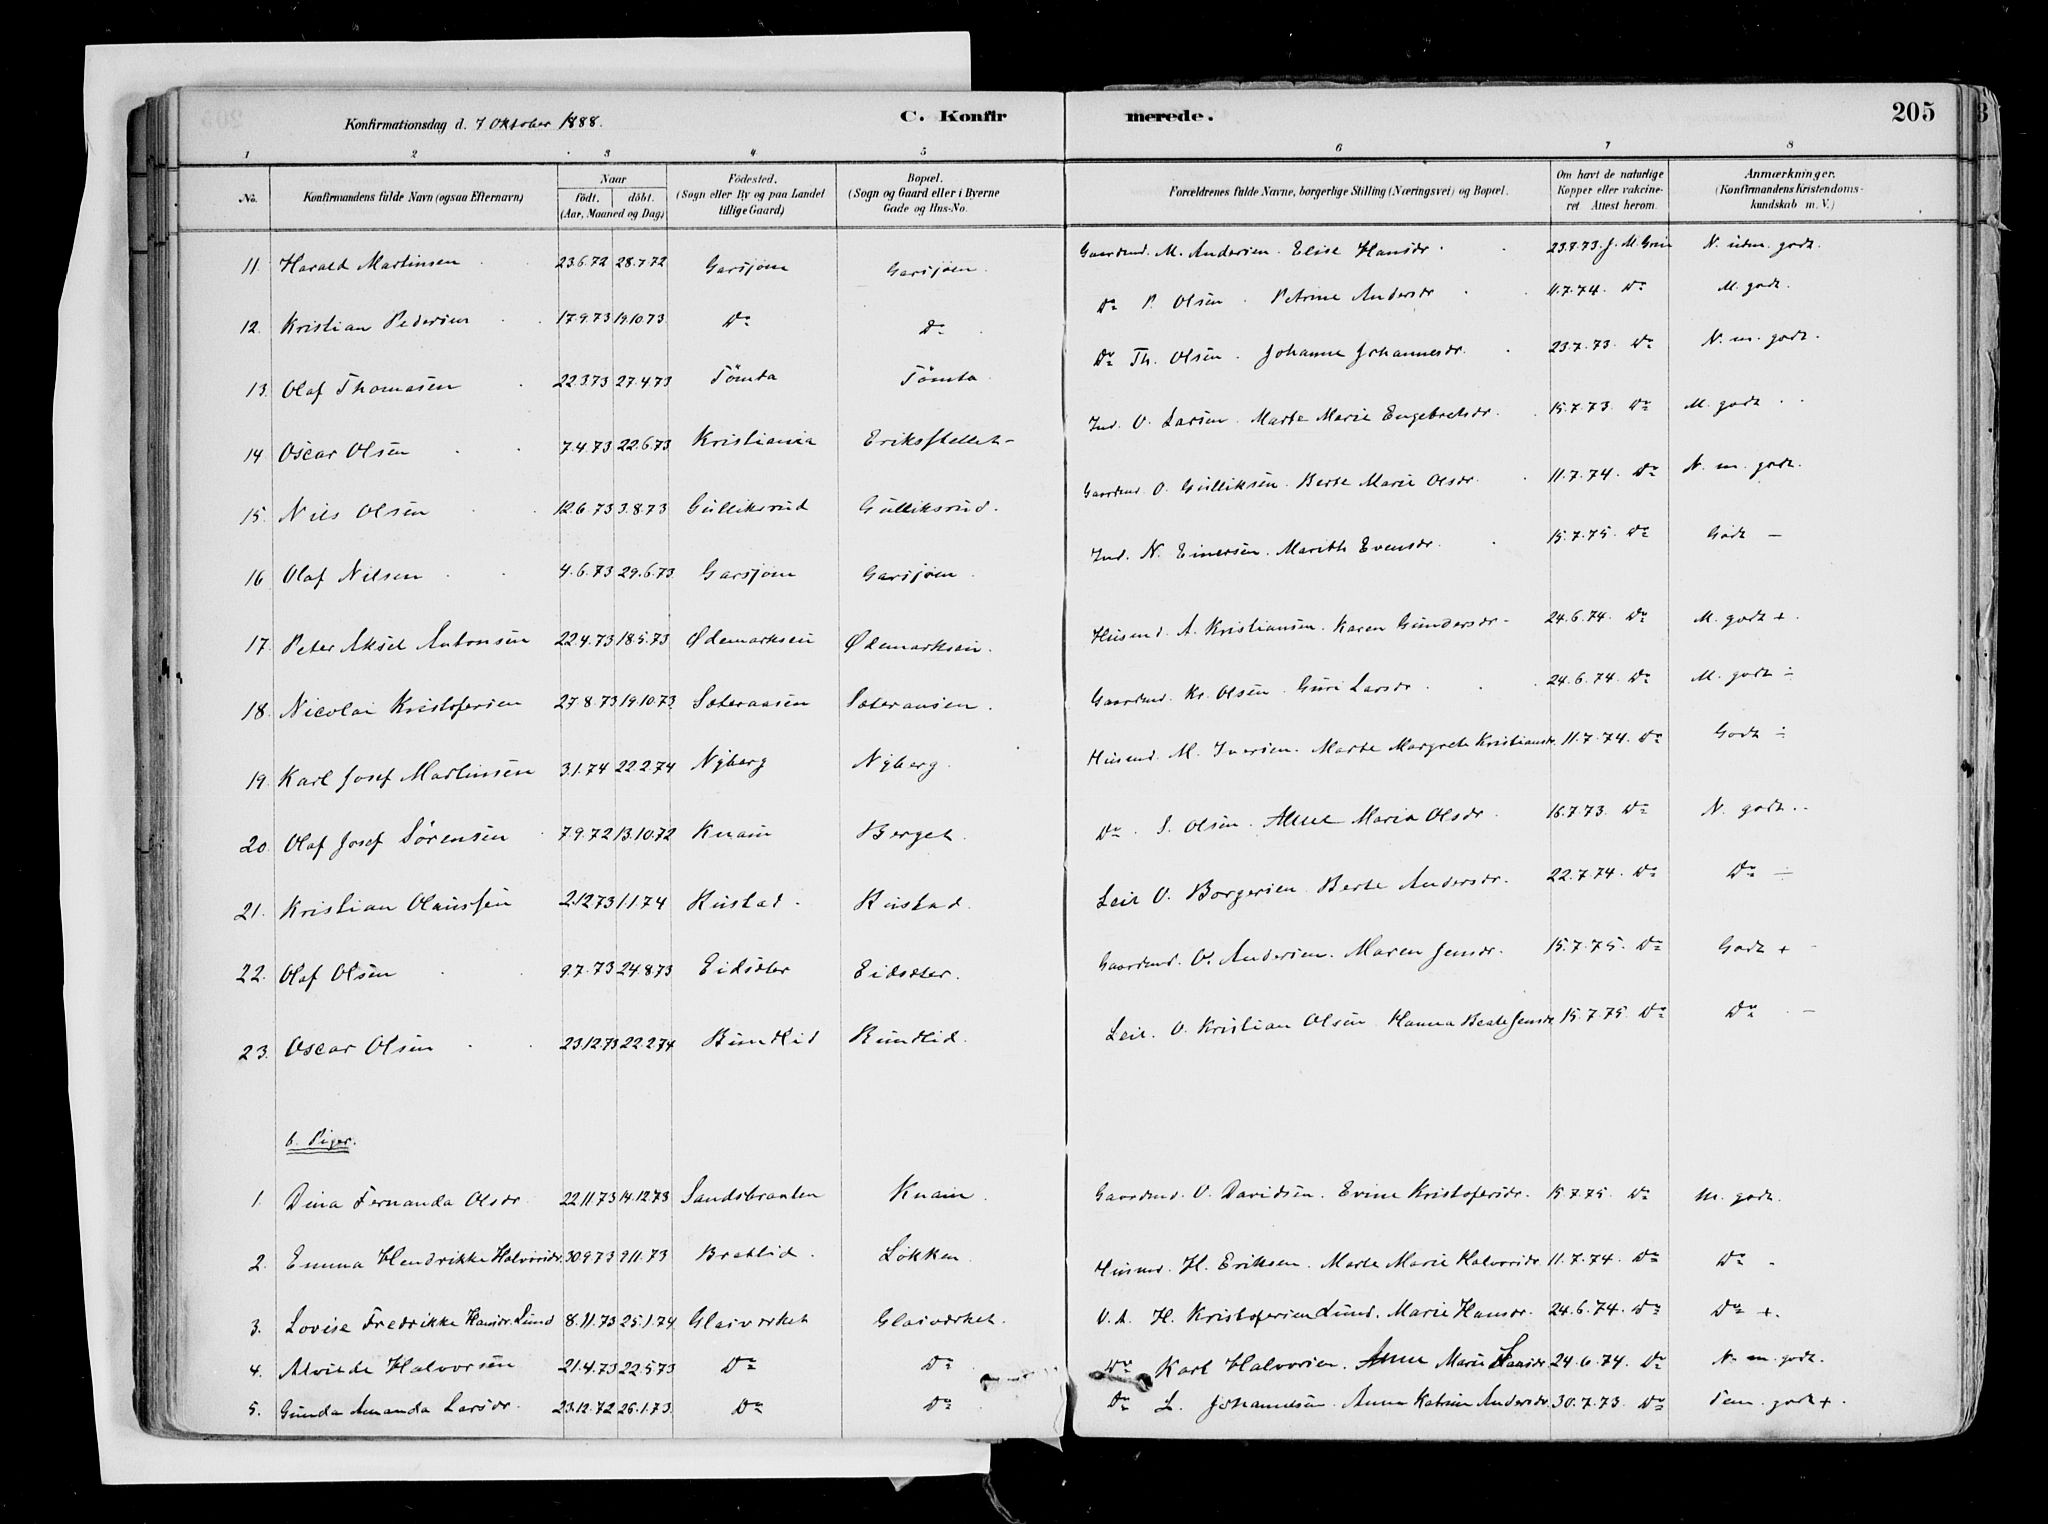 Konfirmationsdag d. 7 Oktober 1888. C. Konfirmerede. 205
1 2 3 4 5 6 7 8
No. Konfirmandens fulde Navn (ogsaa Efternavn) Naar födt. döbt. (Aar, Maaned og Dag) Födested. (Sogn eller By og paa Landet tillige Gaard) Bopæl. (Sogn og Gaard eller i Byerne Gade og Hus-No. Forældrenes fulde Navne, borgerlige Stilling (Næringsvei) og Bopæl. Om havt de naturlige Kopper eller vakcineret Attest herom. Anmærkninger. (Konfirmandens Kristendomskundskab m. V.)
11. Harald Martinsen 23.6.72 28.7.72 Garsjøen Garsjøen. Gaardmd. M. Andersen. Elise Hansdr. 23.7.73. J. M. N. m. godt.
12. Kristian Pedersen 17.9.73 19.10.73 Do Do P. Olsen. Petrine Andersdr 11.7.74. Do M. godt.
13. Olaf Thomasen 22.3.73 27.4.73 Tömta Tömta Do Th. Olsen. Johanne Johannesdr. 23.7.73. Do N. m. godt.
14 Oscar Olsen 7.4.73 22.6.73 Kristiania Eriksstellet Ind. O. Larsen. Marte Marie Engebretsdr. 15.7.73. Do M. godt
15. Nils Olsen 12.6.73 3.8.73 Gulliksrud Gulliksrud. Gaardmd. O. Gulliksen. Berte Marie Olsdr. 11.7.74. Do N. m. godt.
16 Olaf Nilsen 4.6.73 29.6.73 Garsjøen Garsjøen. Ind. N. Einersen. Marith Evensdr. 15.7.75. Do Godt –
17. Peter Aksel Antonsen 22.4.73 18.5.73 Ødemarkseie Ødemarkseie. Husmd. A. Kristiansen. Karen Gundersdr. 24.6.74. Do M. godt +.
18. Nicolai Kristofersen 27.8.73 19.10.73 Sæteraasen Sæteraasen. Gaardmd. Kr. Olsen. Guri Larsdr. 24.6.74. Do M. godt ÷
19. Karl Josef Martinsen 3.1.74 22.2.74 Nyberg Nyberg. Husmd. M. Iversen. Marte Margrete Kristiansdr. 11.7.74. Do Godt ÷
20. Olaf Josef Sörensen 7.9.72 13.10.72 Knain Berget. Do. S. Olsen. Anne Maria Olsdr. 16.7.73. Do N. godt.
21. Kristian Olaussen 2.12.73 1.1.74 Rustad. Rustad. Leil. O. Borgersen. Berte Andersdr. 22.7.74. Do Do ÷
22. Olaf Olsen 9.7.73 24.8.73 Eidsæter Eidsæter. Gaardmd. O. Andersen. Maren Jensdr. 15.7.75. Do Godt +
23. Oscar Olsen 23.12.73 22.2.74 Bundlid Bundlid. Leil. O. Kristian Olsen. Hanna Beate Jensdr. 15.7.75. Do Do –
b. Piger.
1. Dina Fernanda Olsdr. 22.11.73 14.12.73 Sandsbraaten Knain. Gaardmd. O. Davidsen. Evine Kristofersdr. 15.7.75. Do M. godt.
2. Emma Hendrikke Halvorsdr. 30.9.73 9.11.73 Bratlid. Løkken. Husmd. H. Eriksen. Marte Marie Halvorsdr. 11.7.74. Do Do
3. Lovise Fredrikke Hansdr. Lund 8.11.73 25.1.74 Glasværket Glasværket. H. Kristofersen Lund. Marie Hansdr. 24.6.74. Do Do +.
4. Alvilde Halvorsen 21.4.73 22.5.73 Do Do Do Karl Halvorsen. Anne Marie Larsdr. 24.6.74. Do N. m. godt.
5. Gunda Amanda Larsdr. 23.12.72 26.1.73 Do Do Do L. Johannesen. Anne Katrine Andersdr. 30.7.73. Do Tem. godt +.